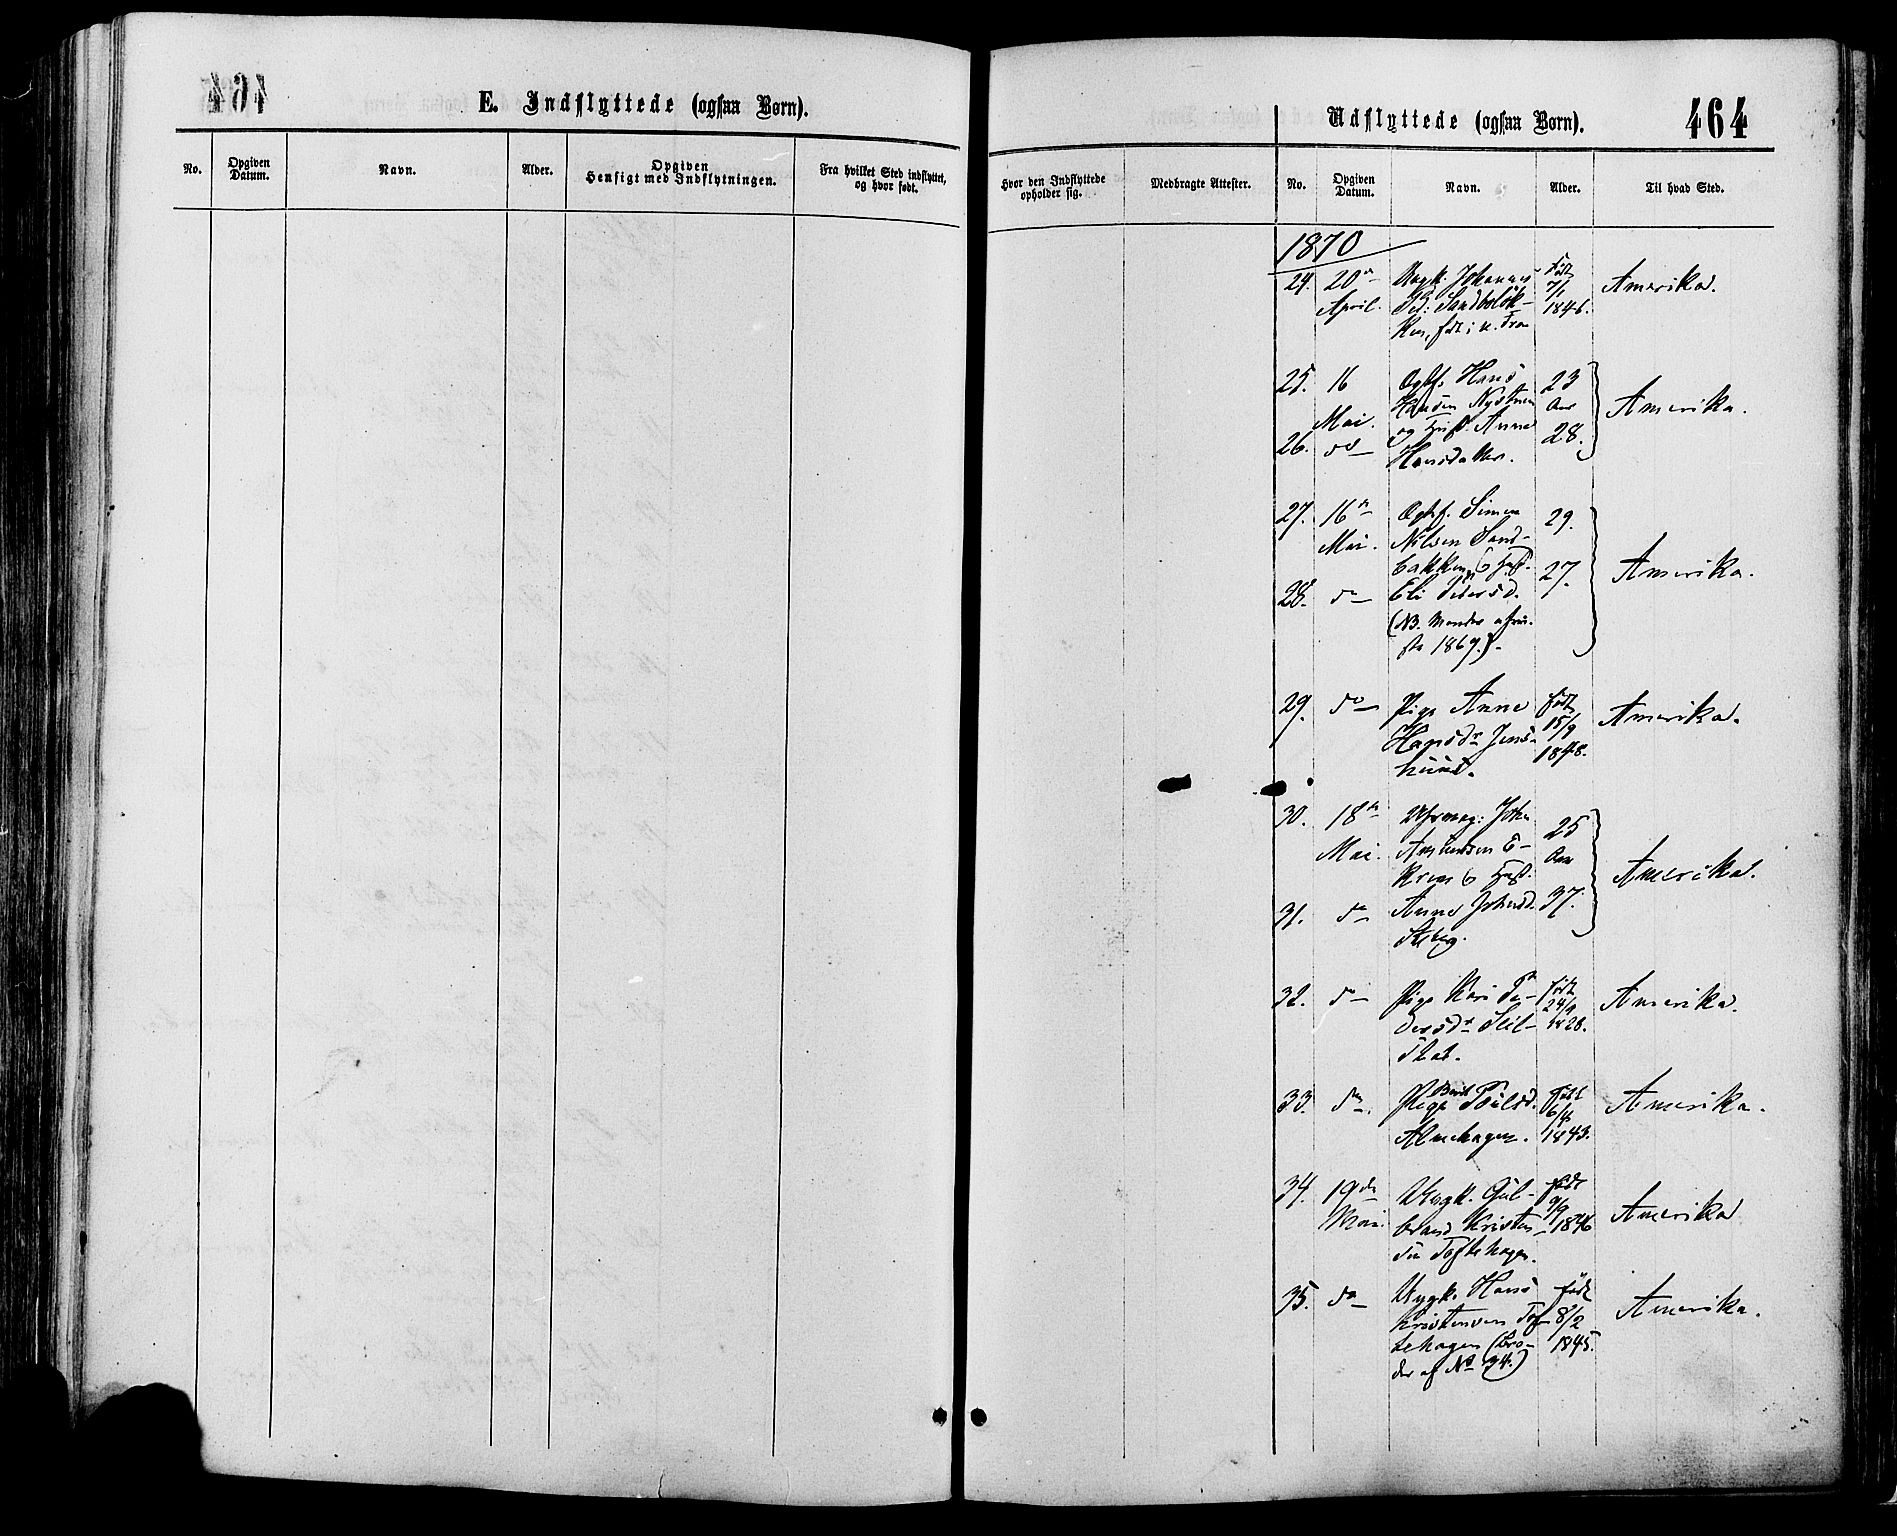 464
E. Indflyttede (ogsaa Børn).
No.
Opgiven
Datum.
Navn.
Alder.
Opgiven
Hensigt med Indflytningen.
Fra hvilket Sted indflyttet,
og hvor født.
Udflyttede (ogsaa Børn).
464
Hvor den Indflyttede
opholder sig.
Medbragte Attester.
No.
Opgiven
Datum.
Navn.
Alder.
Til hvad Sted.
1870
24. 20de Ungk. Johannes født Amerika.
April. Ped: 7/1
født i 1846.
25. 16 Hans 23 Amerika.
Mai. Hansen Aar
26. do og Hust. Anne 28.
Hansdatter.
27. 16de Simen 29. Amerika.
Mai. Nilsen Sand-
bakken, & Hust. 27.
28. do Eli Pedersd.
(NB.
1869.).
29. do Pige Anne født Amerika.
Hansdr Jens- 15/9
1848.
30. 18de John 25 Amerika.
Mai. Amundsen E- Aar
& Hust.
31. do Anne Johnsd. 37.
32. do Pige Kari Pe- født Amerika.
dersdr 24/9
1828.
33. do. Pige Berit Poulsd. født Amerika.
6/4
Almehagen. 1843.
34. 19de Ungk. Gul- født Amerika
Mai. brand Kristen- 9/9 1846
sen Toftehagen.
35. do Ungk. Hans født Amerika.
Kristensen Tof- 8/2
tehagen (Bro- 1845.
der af No 34.)